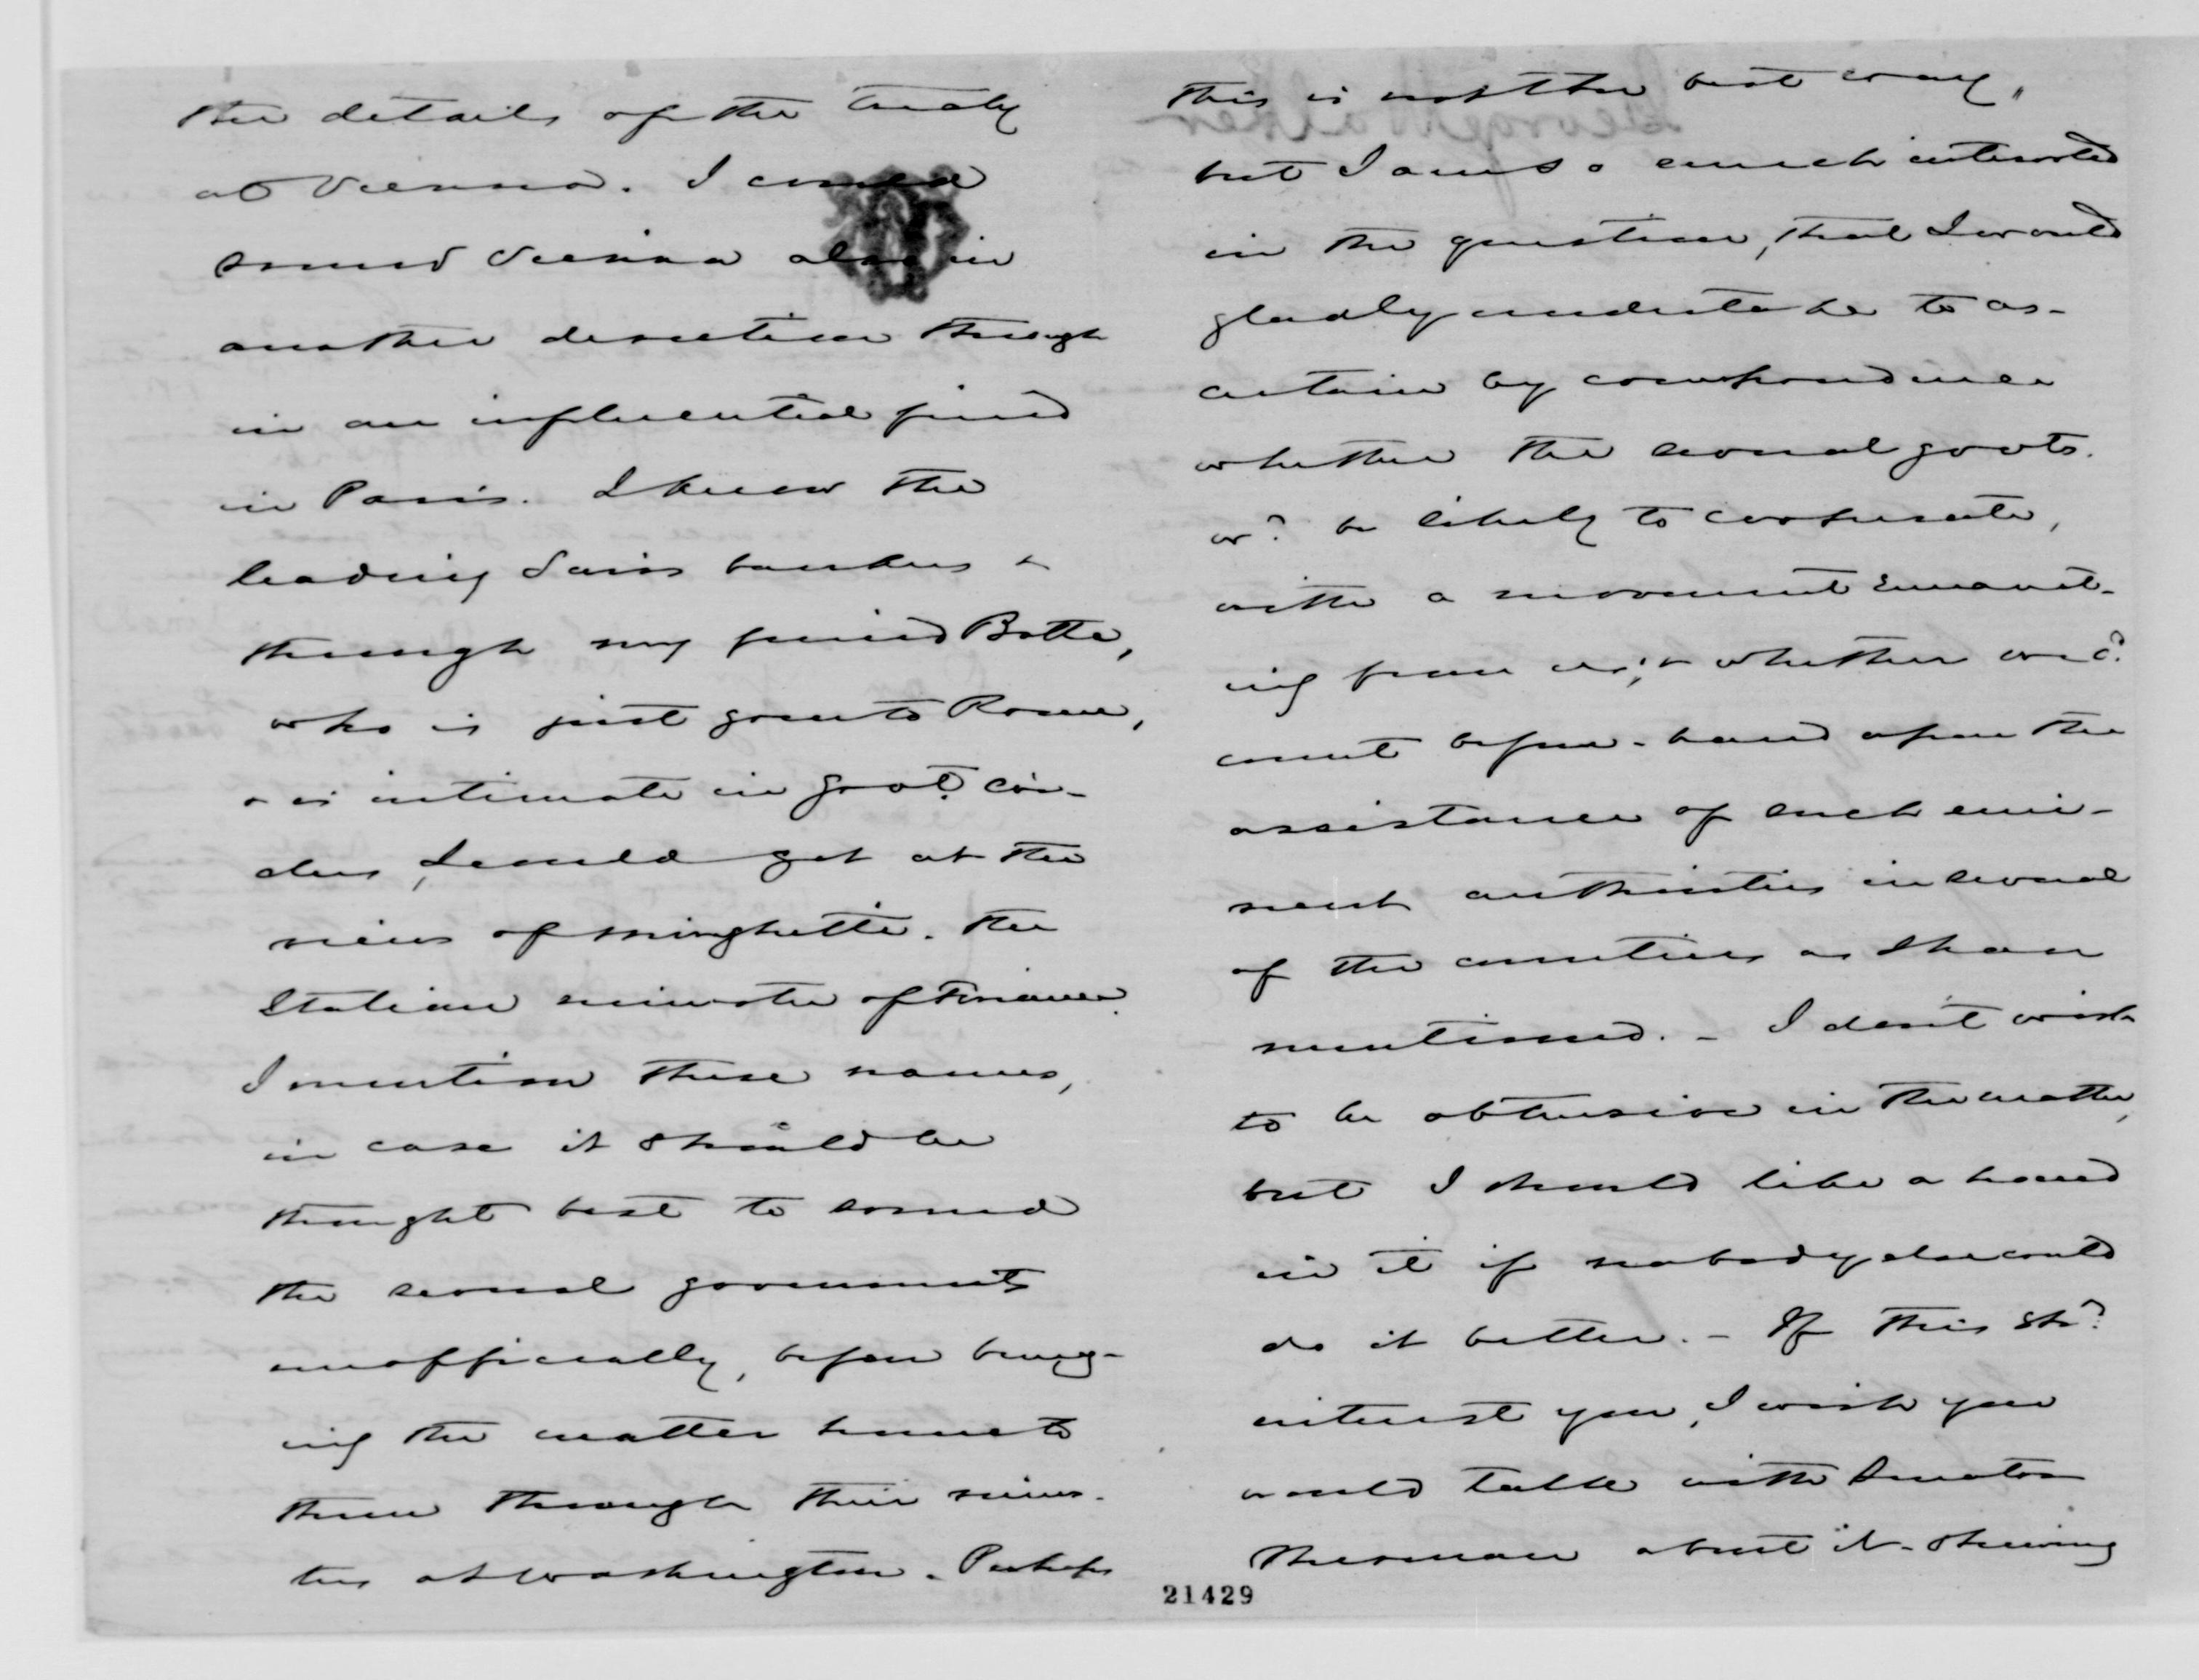 the details of the treaty
at Vienna. I could
sound Vienna also in
another direction through
in an influential friend
in Paris. I know the
leading Swiss bankers &
through my friend Botta,
who is just gone to Rome,
& is intimate in govt. cir-
cles, I could get at the
views of Minghetti. the
Italian minister of Finance.
I mention these names,
in case it should be
thought best to sound
the several governments
unofficially, before bring-
ing the matter home to
them through their minis-
ters at Washington. Perhaps
this is not the best way,
but I am so much interested
in the question, that I would
gladly undertake to as-
certain by correspondence
whether the several govts.
wd. be likely to cooperate,
with a movement emanat-
ing from us; & whether we cd.
count before-hand upon the
assistance of such emi-
nent authorities in several
of the countries as I have
mentioned. - I don't wish
to be obtrusive in the matter,
but I should like a hand
in it if nobody else could
do it better. - If this shd.
interest you, I wish you
would talk with Senator
Thurman about it - showing
21429
George Walker